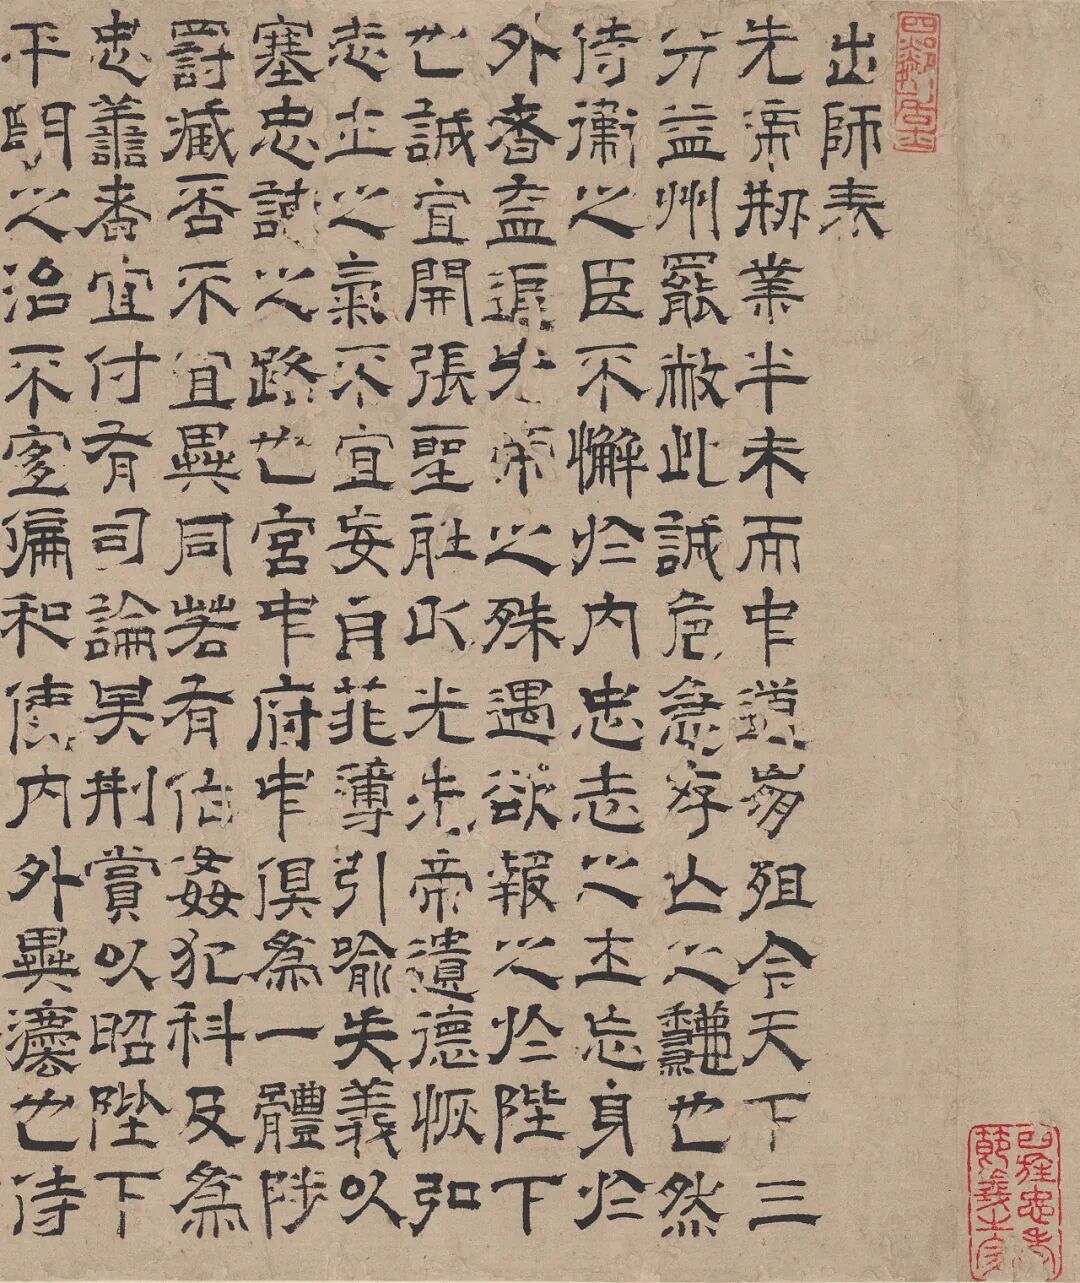 出師表
先帝剏業半未而中道崩殂今天下三
分益州罷敝此誠危急存亡之龝也然
侍衛之臣不懈於內忠志之士忘身於
外者蓋追先帝之殊遇欲報之於陛下
也誠宜開張聖聽以光先帝遺德恢弘
志士之氣不宜妄自菲薄引喻失義以
塞忠諫之路也宮中府中俱爲一體陟
罰臧否不宜異同若有作姦犯科及爲
忠譱者宜付有司論其刑賞以昭陛下
平明之治不宜偏私使內外異灋也侍